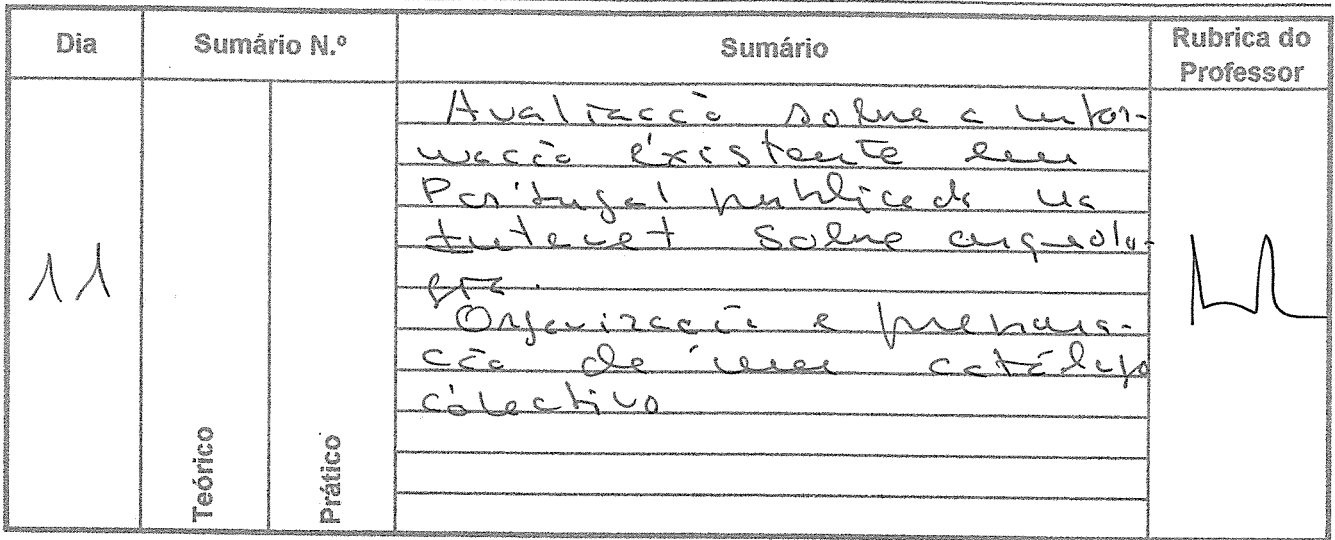 Dia
Sumário N.º
Sumário
Rubrica do
Professor
11
Avaliacção sobre a infor-
mação existente em
Portugal publicada na
Internet sobre arqueolo-
gia.
Organização e prepara-
ção de um catálogo
colectivo
Teórico
Prático